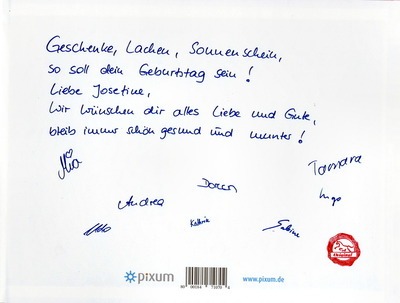 Geschenke, Lachen, Sonnenschein,
so soll dein Geburtstag sein!
Liebe Josefine,
Wir wünschen dir alles Liebe und Gute,
bleib immer schön gesund und munter!
Mia
Tamara
Doreen
Ingo
Andrea
Kathrin
Sabine
pixum
www.pixum.de